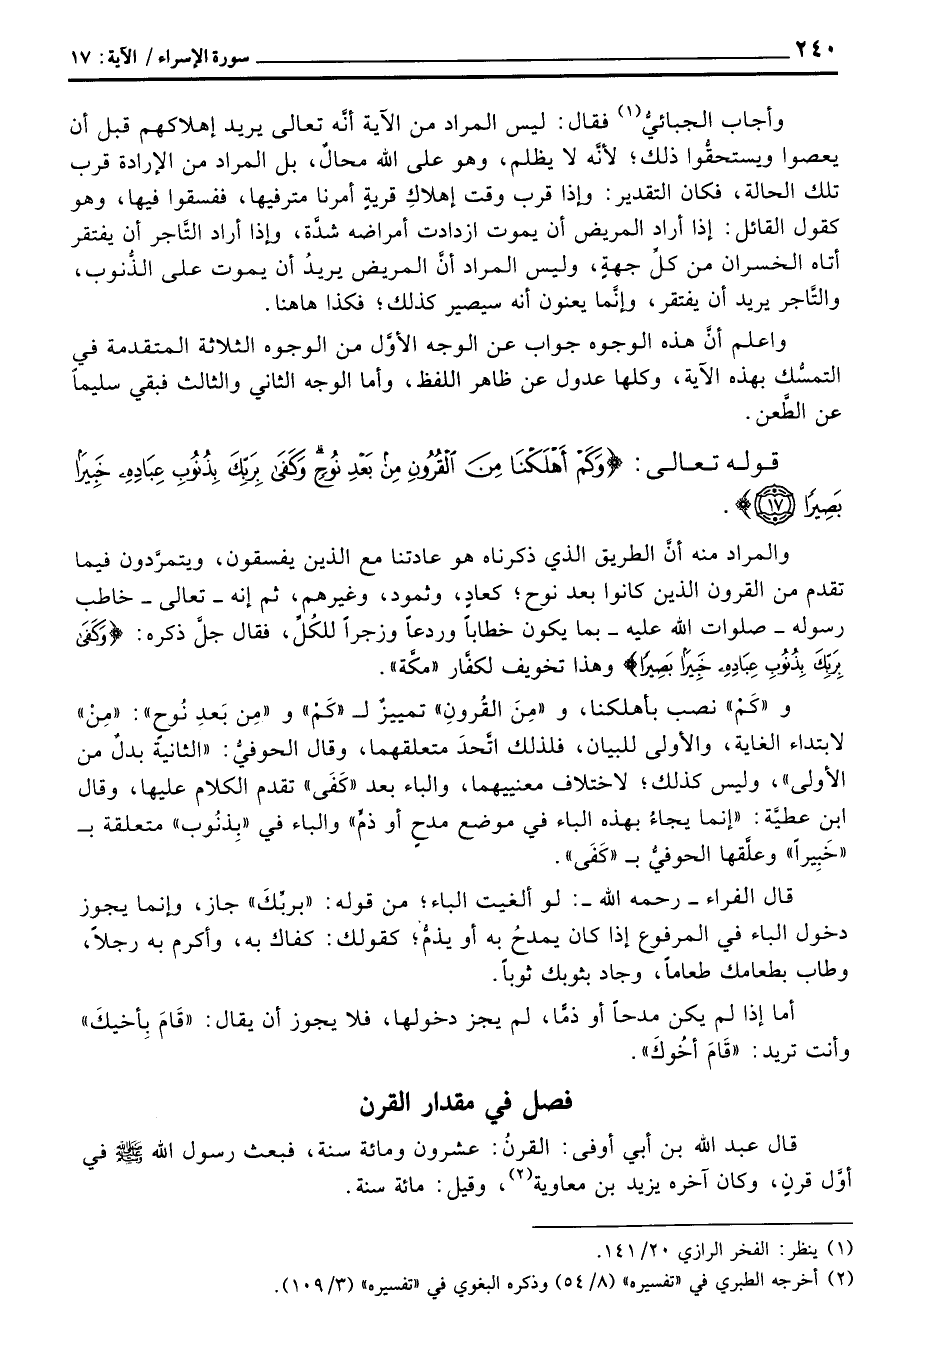 ٢٤٠ سورة الإسراء / الآية: ١٧
وأجاب الجبائيُّ(١) فقال: ليس المراد من الآية أنَّه تعالى يريد إهلاكهم قبل أن
يعصوا ويستحقُّوا ذلك؛ لأنَّه لا يظلم، وهو على الله محالٌ، بل المراد من الإرادة قرب
تلك الحالة، فكان التقدير: وإذا قرب وقت إهلاكِ قريةٍ أمرنا مترفيها، ففسقوا فيها، وهو
كقول القائل: إذا أراد المريض أن يموت ازدادت أمراضه شدَّة، وإذا أراد التَّاجر أن يفتقر
أتاه الخسران من كلِّ جهةٍ، وليس المراد أنَّ المريض يريدُ أن يموت على الذُّنوب،
والتَّاجر يريد أن يفتقر، وإنَّما يعنون أنه سيصير كذلك؛ فكذا هاهنا.
واعلم أنَّ هذه الوجوه جواب عن الوجه الأوَّل من الوجوه الثلاثة المتقدمة في
التمسُّك بهذه الآية، وكلها عدول عن ظاهر اللفظ، وأما الوجه الثاني والثالث فبقي سليماً
عن الطَّعن.
قوله تعالى: ﴿وَكَمْ أَهْلَكْنَا مِنَ ٱلْقُرُونِ مِنۢ بَعْدِ نُوحٍۗ وَكَفَىٰ بِرَبِّكَ بِذُنُوبِ عِبَادِهِۦ خَبِيرًۢا
بَصِيرًا ١٧﴾.
والمراد منه أنَّ الطريق الذي ذكرناه هو عادتنا مع الذين يفسقون، ويتمرَّدون فيما
تقدم من القرون الذين كانوا بعد نوح؛ كعادٍ، وثمود، وغيرهم، ثم إنه ـ تعالى ـ خاطب
رسوله ـ صلوات الله عليه ـ بما يكون خطاباً وردعاً وزجراً للكُلِّ، فقال جلَّ ذكره: ﴿وَكَفَىٰ
بِرَبِّكَ بِذُنُوبِ عِبَادِهِۦ خَبِيرًۢا بَصِيرًا﴾ وهذا تخويف لكفَّار «مكَّة».
و «كَمْ» نصب بأهلكنا، و «مِنَ القُرونِ» تمييزٌ لـ «كَمْ» و «مِن بَعدِ نُوح»: «مِنْ»
لابتداء الغاية، والأولى للبيان، فلذلك اتَّحدَ متعلقهما، وقال الحوفيُّ: «الثانيةُ بدلٌ من
الأولى»، وليس كذلك؛ لاختلاف معنييهما، والباء بعد «كَفَى» تقدم الكلام عليها، وقال
ابن عطيَّة: «إنما يجاءُ بهذه الباء في موضع مدحٍ أو ذمٍّ» والباء في «بِذنُوب» متعلقة بـ
«خَبِيراً» وعلَّقها الحوفيُّ بـ «كَفَى».
قال الفراء ـ رحمه الله ـ: لو ألغيت الباء؛ من قوله: «بربِّكَ» جاز، وإنما يجوز
دخول الباء في المرفوع إذا كان يمدحُ به أو يذمُّ؛ كقولك: كفاك به، وأكرم به رجلاً،
وطاب بطعامك طعاماً، وجاد بثوبك ثوباً.
أما إذا لم يكن مدحاً أو ذمًّا، لم يجز دخولها، فلا يجوز أن يقال: «قَامَ بِأخيكَ»
وأنت تريد: «قَامَ أخُوكَ».
فصل في مقدار القرن
قال عبد الله بن أبي أوفى: القرنُ: عشرون ومائة سنة، فبعث رسول الله ﷺ في
أوَّل قرنٍ، وكان آخره يزيد بن معاوية(٢)، وقيل: مائة سنة.
(١) ينظر: الفخر الرازي ٢٠/١٤١.
(٢) أخرجه الطبري في «تفسيره» (٨/٥٤) وذكره البغوي في «تفسيره» (٣/١٠٩).